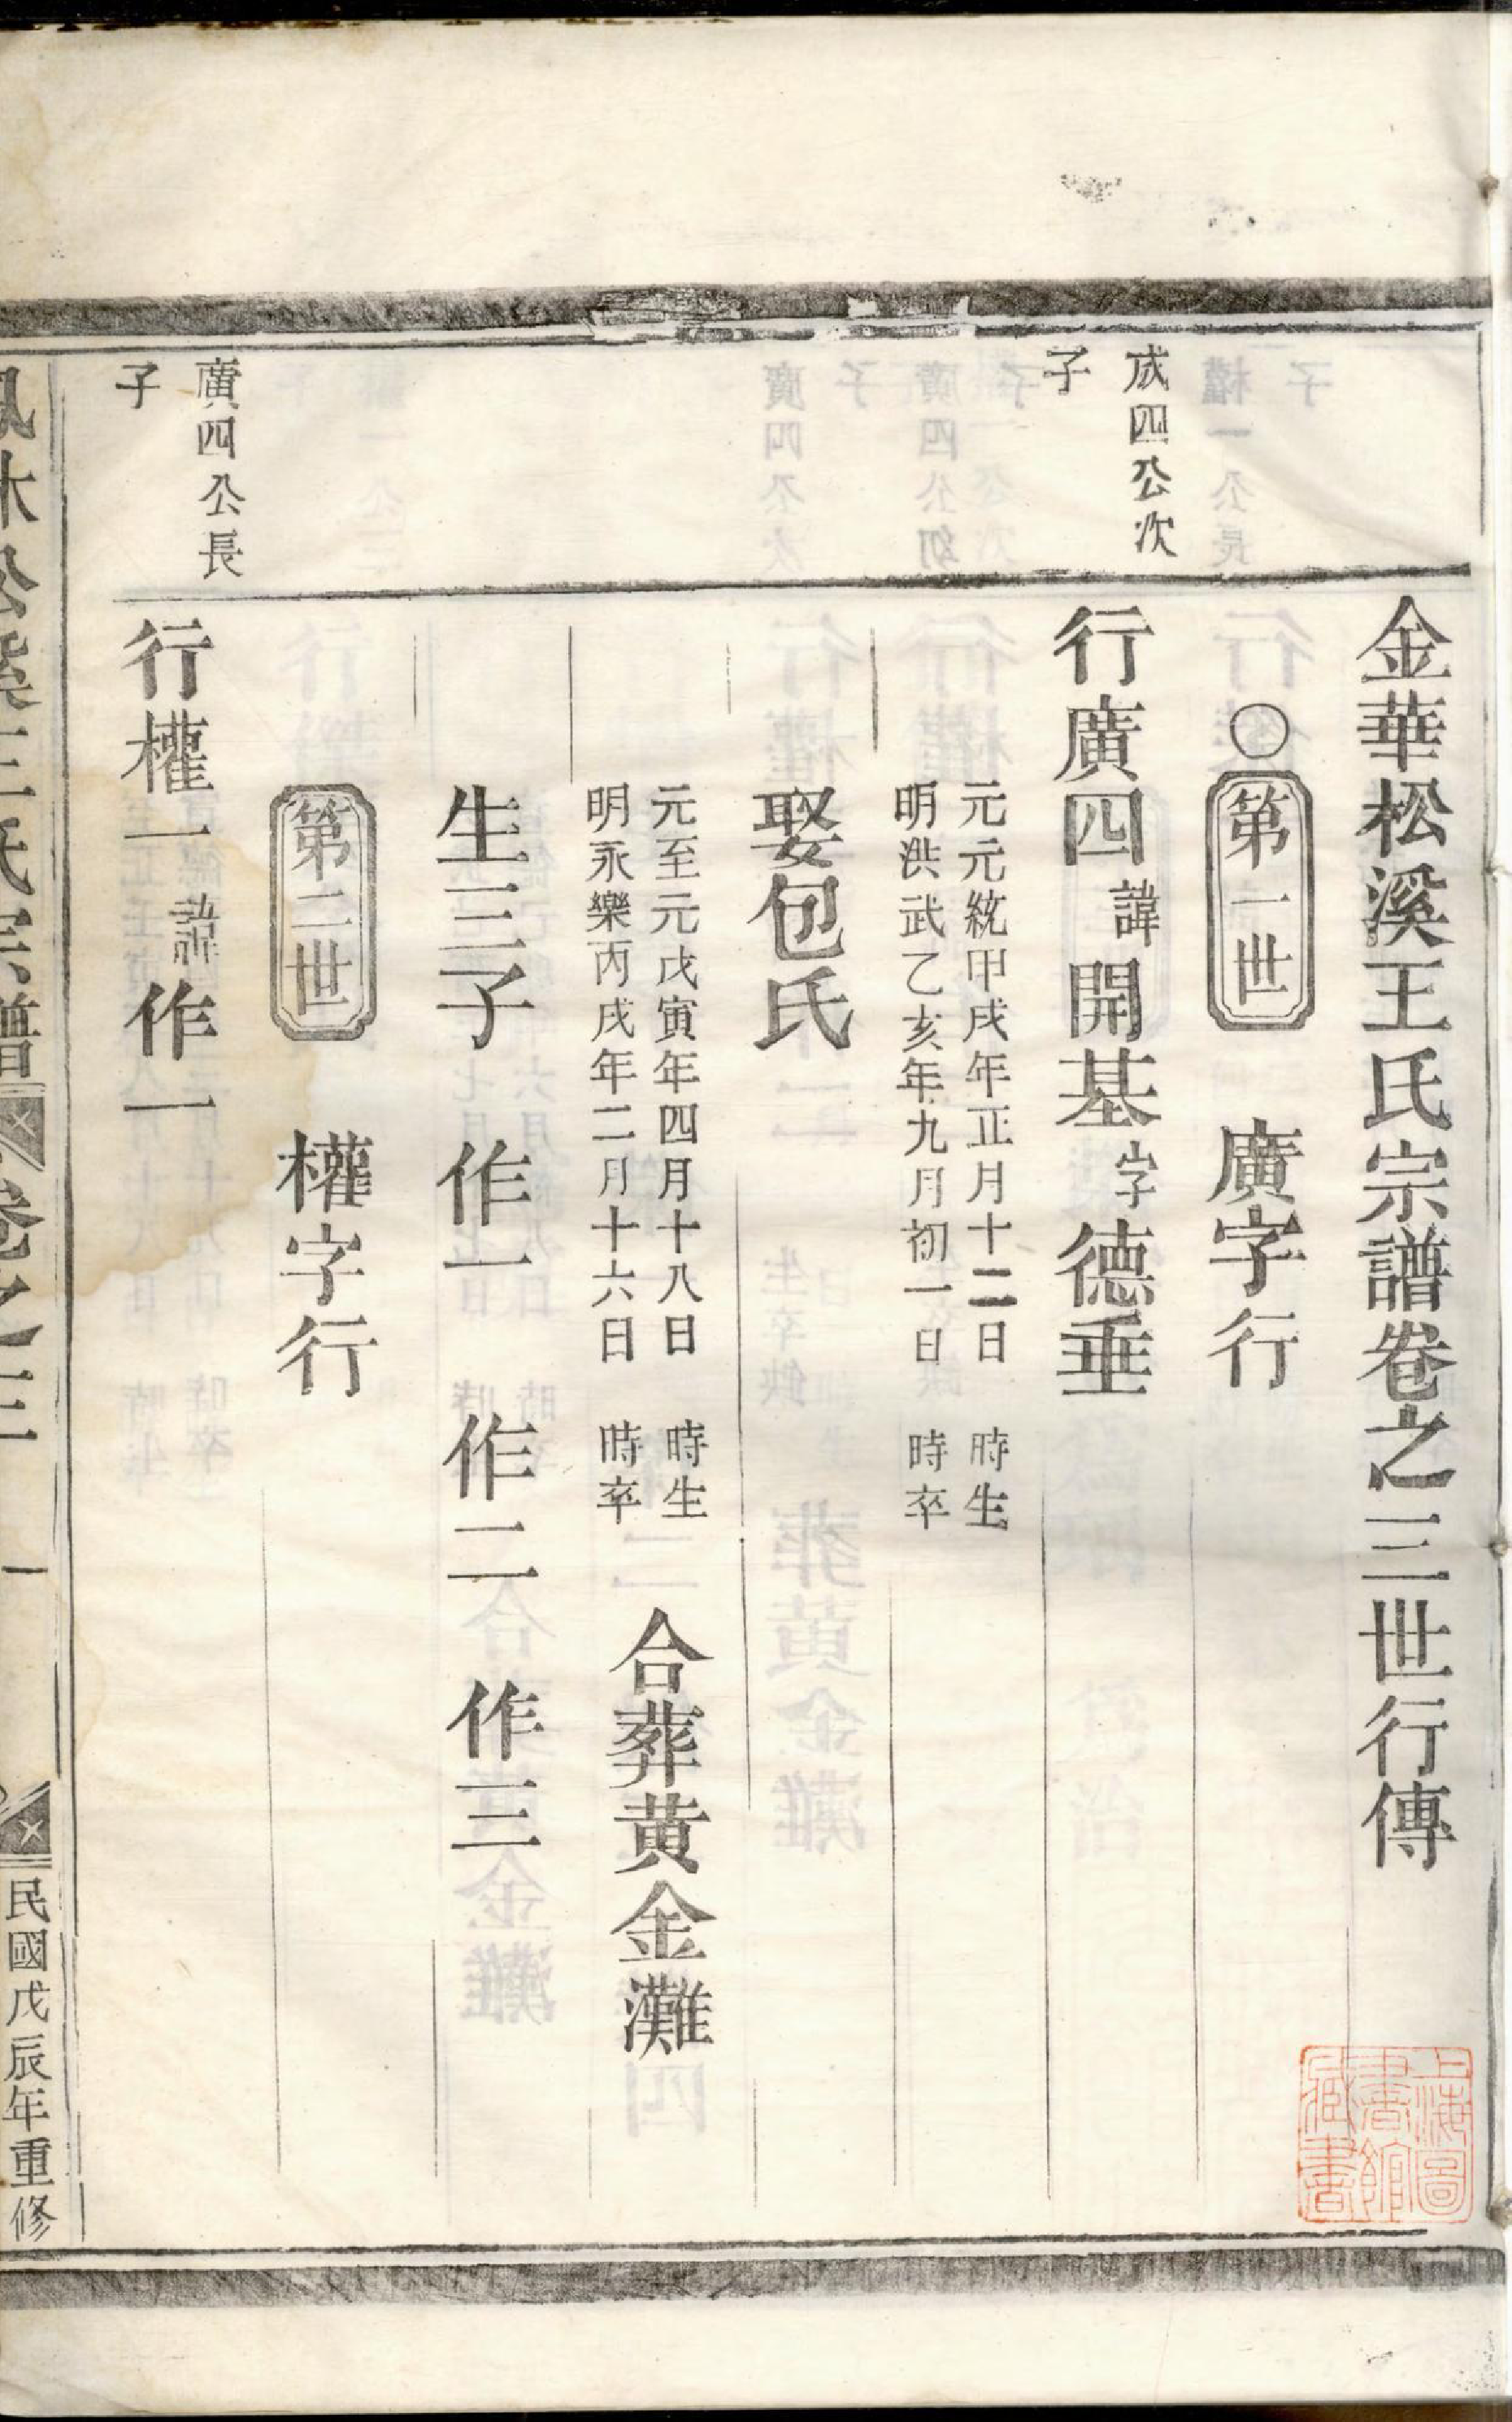 金華松溪王氏宗譜卷之三世行傳
○第一世 廣字行
成四公次
子
行廣四諱開基字德垂
元元統甲戌年正月十二日 時生
明洪武乙亥年九月初一日 時卒
娶包氏
元至元戊寅年四月十八日 時生
明永樂丙戌年二月十六日 時卒
合葬黄金灘
生三子 作一 作二 作三
第二世 權字行
廣四公長
子
行權一諱作一
松溪王氏宗譜 卷之三 一 民國戊辰年重修
上海圖書館藏書